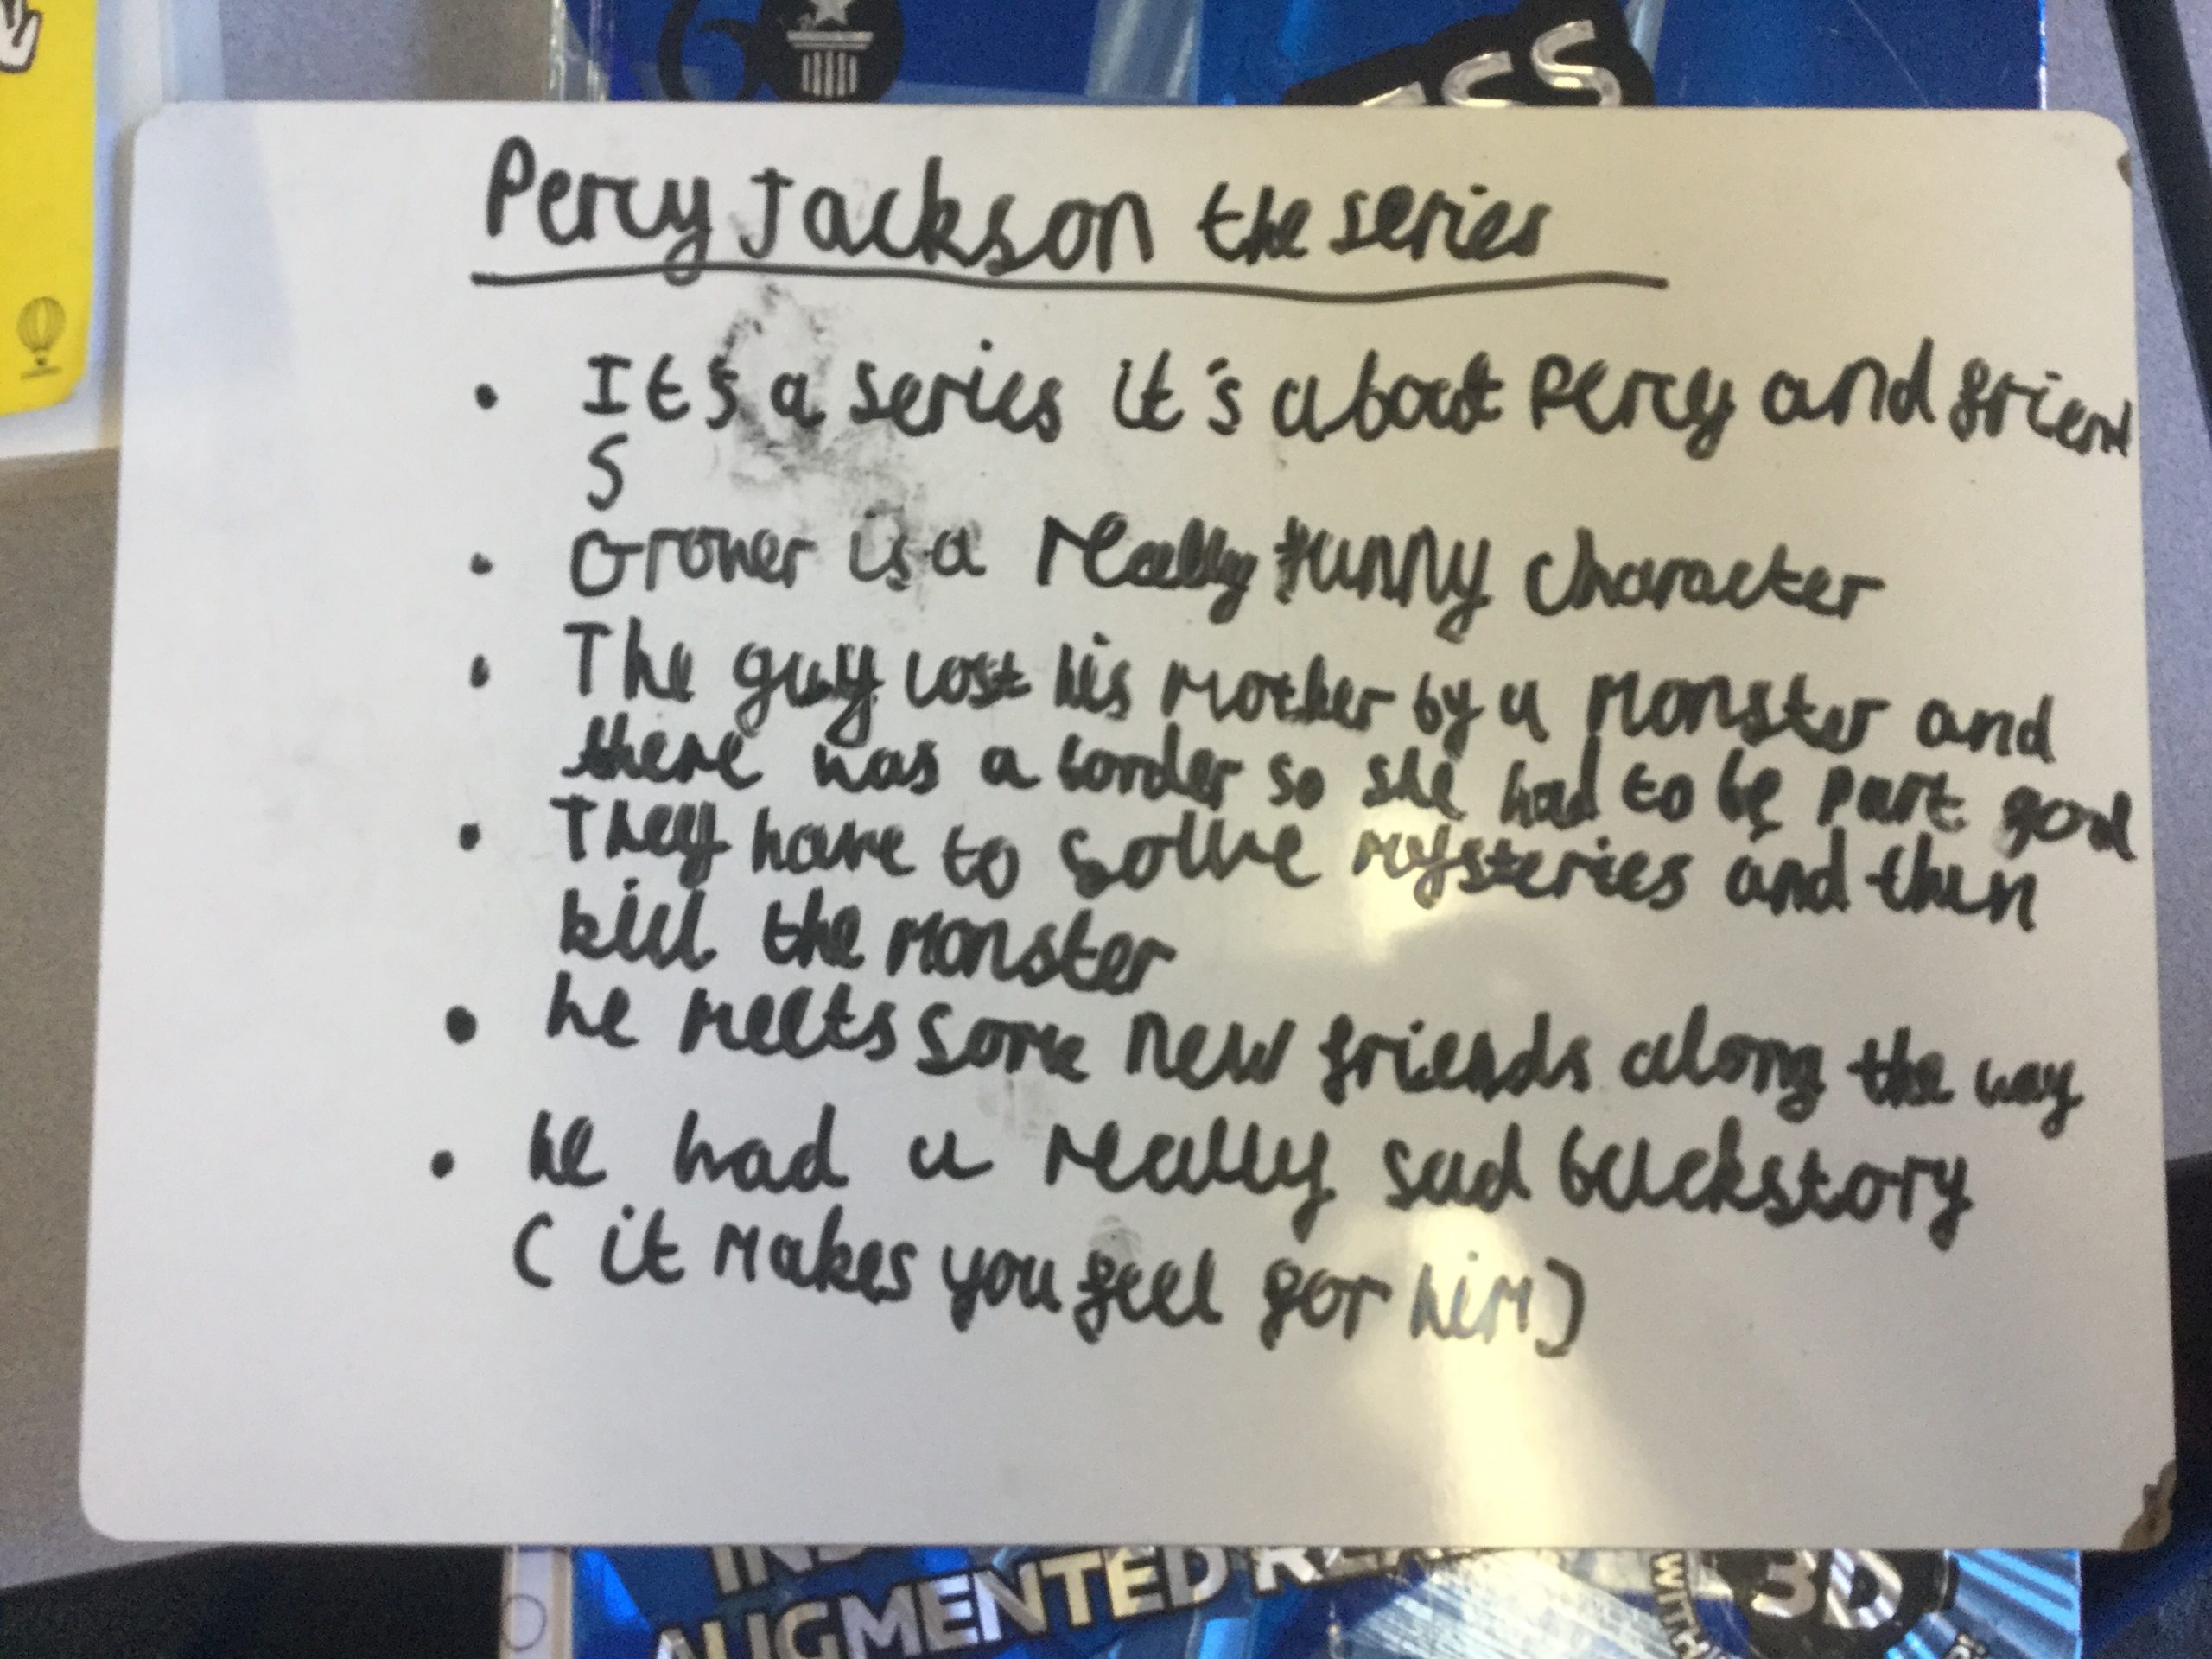 ICS
Percy Jackson the series
• It's a series it's about Percy and friend
s
• Grover is a really funny character
• The guy lost his mother by a monster and
there was a border so she had to be part god
• They have to solve mysteries and then
kill the monster
• he meets some new friends along the way
• he had a really sad backstory
( it makes you feel for him)
AUGMENTED
WITH
3D